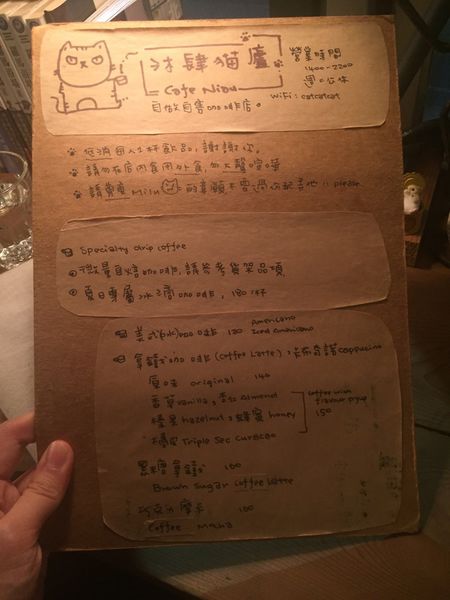 沐肆貓廬
Cafe Nibu
自做自售咖啡店。
營業時間
1400-2200
週一公休
WiFi: catcatcat
低消團人1杯飲品,謝謝你。
請勿在店內食用外食,勿大聲喧嘩
請 Milu 的意願不要 please
Specialty drip coffee
微量自焙咖啡,請參考貨架品項
夏日專屬冰滴咖啡,180/杯
美式(冰)咖啡 120 Americano
Iced Americano
拿鐵咖啡(Coffee Latte),卡布奇諾cappuccino
原味 original 140
香草vanilla,杏仁almond
榛果hazelnut,蜂蜜honey
Triple Sec curacao
Coffee with
flavour syrup
150
黑糖拿鐵 160
Brown Sugar Coffee Latte
巧克力摩卡 160
Coffee Mocha